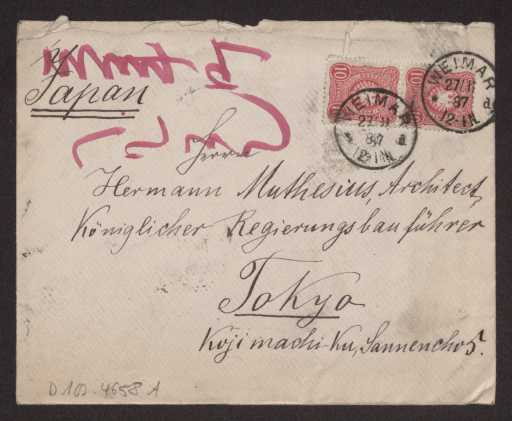 Japan
10
10
WEIMAR
27/11
87
12-1N
d
WEIMAR
27/11
87
12-1N
d
Herrn
Hermann Muthesius, Architect,
Königlicher Regierungsbauführer
Tokyo
Kojimachi-Ku, Sannencho 5.
D 102-4658 A